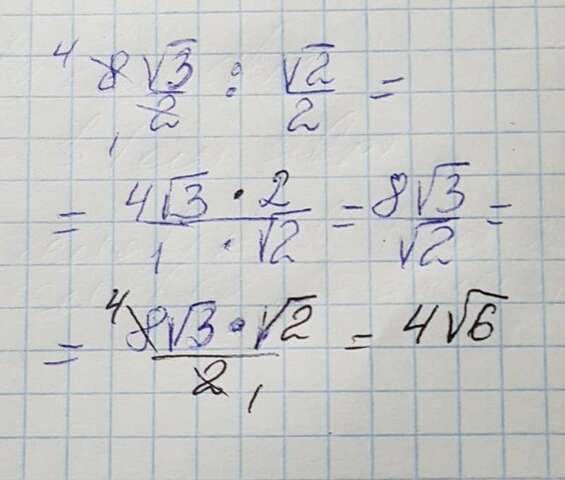 ⁴8√3/2₁ : √2/2 =
= 4√3 · 2 / 1 · √2 = 8√3/√2 =
= ⁴8√3 · √2 / 2₁ = 4√6